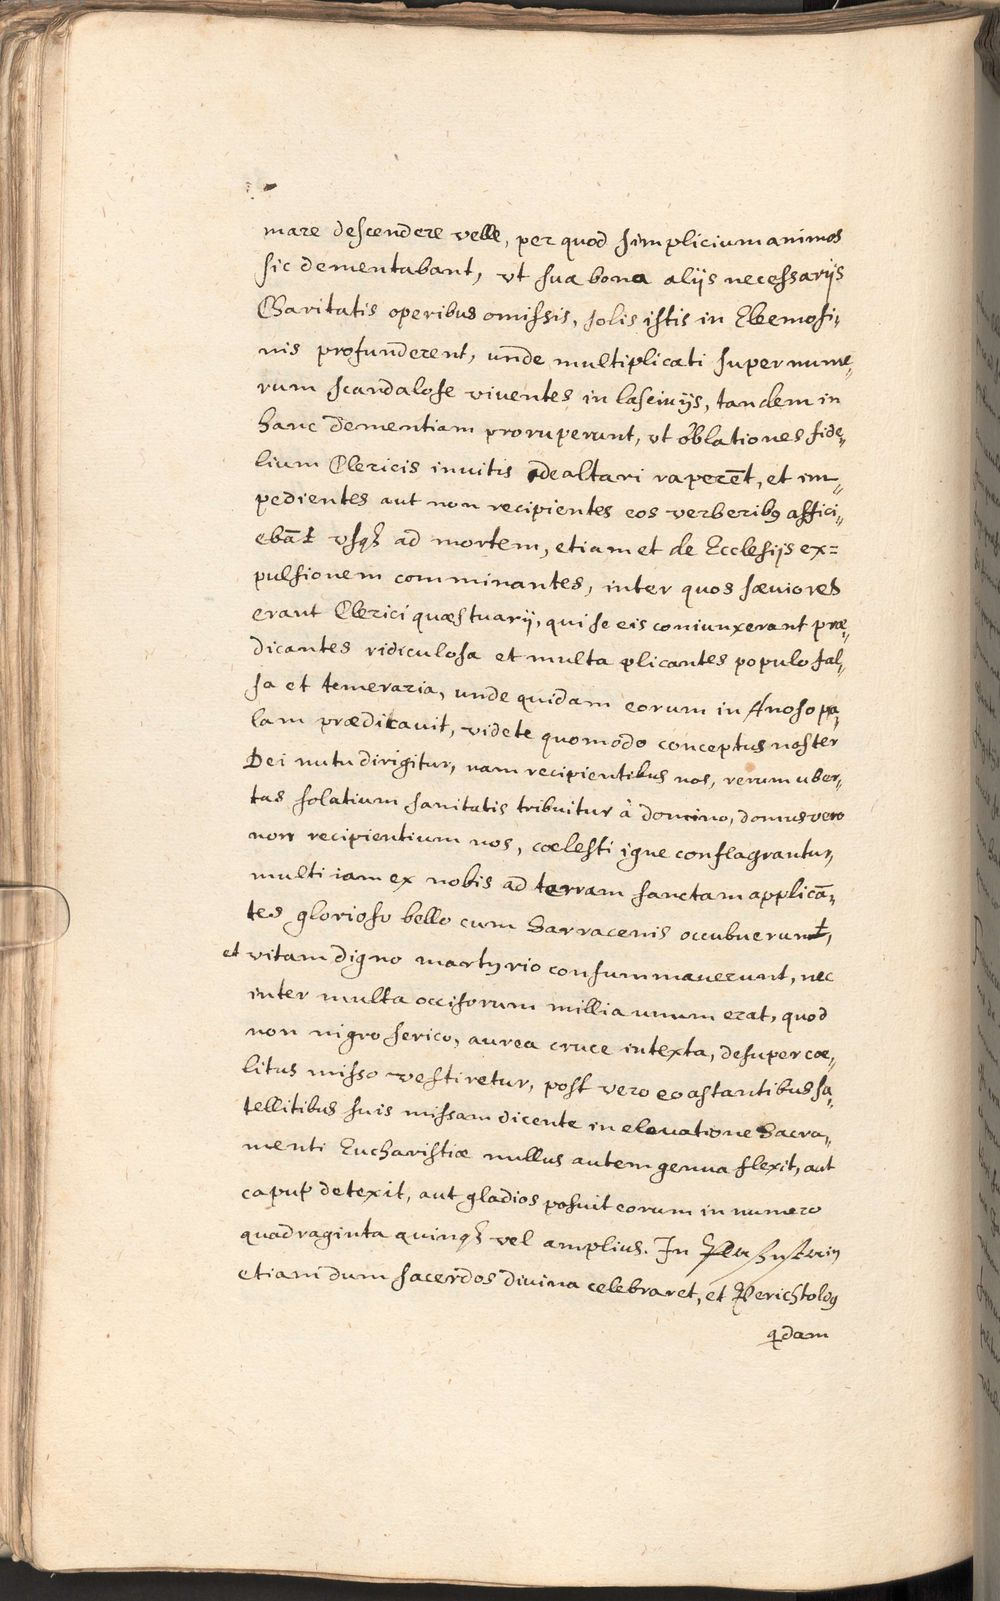 mare descendere velle, per quod simplicium animos
sic dementabant, vt sua bona alijs necessarijs
Charitatis operibus omissis, solis istis in Eleemosi„
nis profunderent, unde multiplicati super nume„
rum scandalose viventes in lascivijs, tandem in
hanc dementiam proruperunt, vt oblationes fide„
lium Clericis invitis de altari raperēt, et im„
pedientes aut non recipientes eos verberibꝯ affici„
ebāt vsqꝫ ad mortem, etiam et de Ecclesijs ex=
pulsionem comminantes, inter quos sæviores
erant Clerici quæstuarij, qui se eis coniunxerant præ„
dicantes ridiculosa et multa plicantes populo fal„
sa et temeraria, unde quidam eorum in Anoso pa„
lam prædicavit, videte quomodo conceptus noster
Dei nutu dirigitur, nam recipientibus nos, rerum uber„
tas solatium sanitatis tribuitur à domino, domus vero
non recipientium nos, cœlesti igne conflagrantur,
multi iam ex nobis ad terram sanctam applicā„
tes glorioso bello cum Sarracenis occubuerunt,
et vitam digno martyrio consummaverunt, nec
inter multa occisorum millia unum erat, quod
non nigro serico, aurea cruce intexta, desuper cœ„
litus misso vestiretur, post vero eo astantibus sa„
tellitibus suis missam dicente in elevatione Sacra„
menti Eucharistiæ nullus autem genua flexit, aut
caput detexit, aut gladios posuit eorum in numero
quadraginta quinqꝫ vel amplius. In
etiam dum sacerdos divina celebraret, et Perichtoldꝯ
qdam